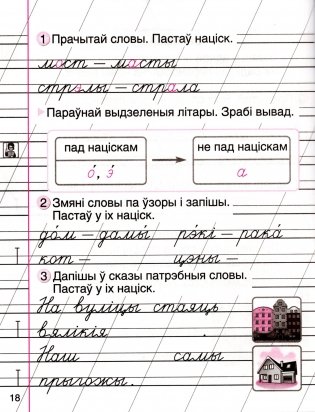 1 Прачытай словы. Пастаў націск.
мост – масты
стрэлы – страла
Параўнай выдзеленыя літары. Зрабі вывад.
пад націскам → не пад націскам
о́, э́ а
2 Змяні словы па ўзоры і запішы.
Пастаў у іх націск.
до́м – дамы́ рэ́кі – рака́
кот – цэны –
3 Дапішы ў сказы патрэбныя словы.
Пастаў у іх націск.
На вуліцы стаяць
вялікія
Наш самы
прыгожы.
18